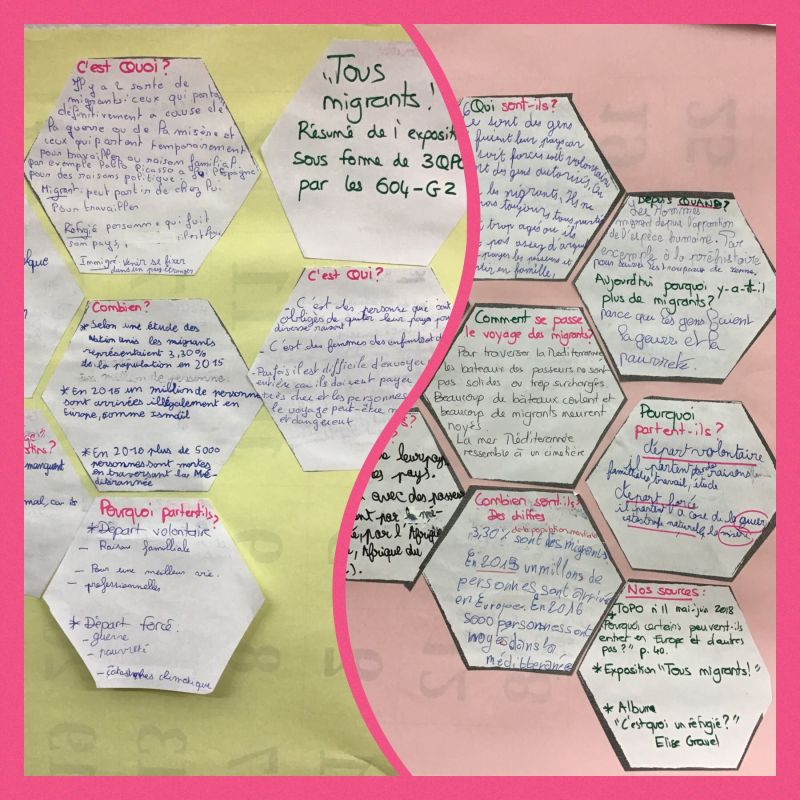 C'est Quoi?
Il y a 2 sorte de
migrants: ceux qui partent
définitivement à cause de
la guerre ou de la misère et
ceux qui partent temporairement
pour travailler ou raison familial.
par exemple Pablo Picasso a
pour des raisons politique
Migrant: peut partir de chez lui
pour travailler
Refugié personne, qui fuit
son pays,
Immigré: venir se fixer
dans un pays étranger
"Tous
migrants!
Résumé de l'exposit
sous forme de 3QPC
par les 604-G2
Combien?
* Selon une étude des
Nation unis les migrants
représentaient 3,30%
de la population en 2015
* En 2015 un million de personne
sont arrivées illégalement en
Europe, comme Ismaël
* En 2016 plus de 5000
personnes sont mortes
en traversant la Mé-
diterannée
C'est Qui?
C'est des personne que sont
obligés de quiter leur pays pour
diverse raison
- C'est des femmes des enfants et d
- Parfois il est difficile d'envoyer
car ils doivent payer
très cher et les personnes
le voyage peut-être
et dangereut
Pourquoi partent-ils?
* Départ volontaire
- Raison familiale
- Pour une meilleur vie.
- professionnelles
* Départ forcé.
- guerre
- pauvreté
- catastrophes climatique
manquent
mal, car ils
Qui sont-ils?
Ce sont des gens
fuient leur pays car
sont forcés soit volontaires
des gens autorisés,
les migrants, ils ne
pas toujours tous parti
trop agés ou ils
pas assez d'argent
payer les passeurs et
partir en famille.
Depuis QUAND?
Les hommes
migrent depuis l'apparition
de l'espèce humaine. Par
exemple à la préhistoire
pour suivre les troupeaux de renne.
Aujourd'hui pourquoi y-a-t-il
plus de migrants?
parce que les gens fuient
la guerre et la
pauvreté.
Comment se passe
le voyage des migrants?
Pour traverser la Méditerranée
les bateaux des passeurs ne sont
pas solides ou trop surchargés.
Beaucoup de bâteaux coulent et
beaucoup de migrants meurent
noyés.
La mer Méditerranée
ressemble à un cimetière
Pourquoi
partent-ils?
départ volontaire
il partent pour raisons
familliales, travail, étude
départ forcé
il partent a cose de la guerre
catastrop naturel, la misère
leur pays
pays.
avec des passeu
ont par la mé-
par l'Afrique
, Afrique du
).
Combien sont-ils?
Des chiffres
3,30% de la population mondiale
sont des migrants
En 2015 un millons de
personnes sont arrivé
en Europe. En 2016
5000 personnes sont
noyés dans la
méditterranée
Nos sources:
* TOPO n°11 mai-juin 2018
"Pourquoi certains peuvent-ils
entrer en Europe et d'autres
pas?" p. 40.
* Exposition "Tous migrants!"
* Album
"C'est quoi un réfugié?"
Elise Gravel